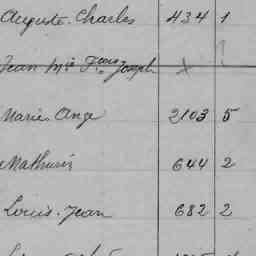 Auguste Charles 434 1
Jean Mie Fçois Joseph x
Marie Ange 2103 5
Mathurin 644 2
Louis Jean 682 2